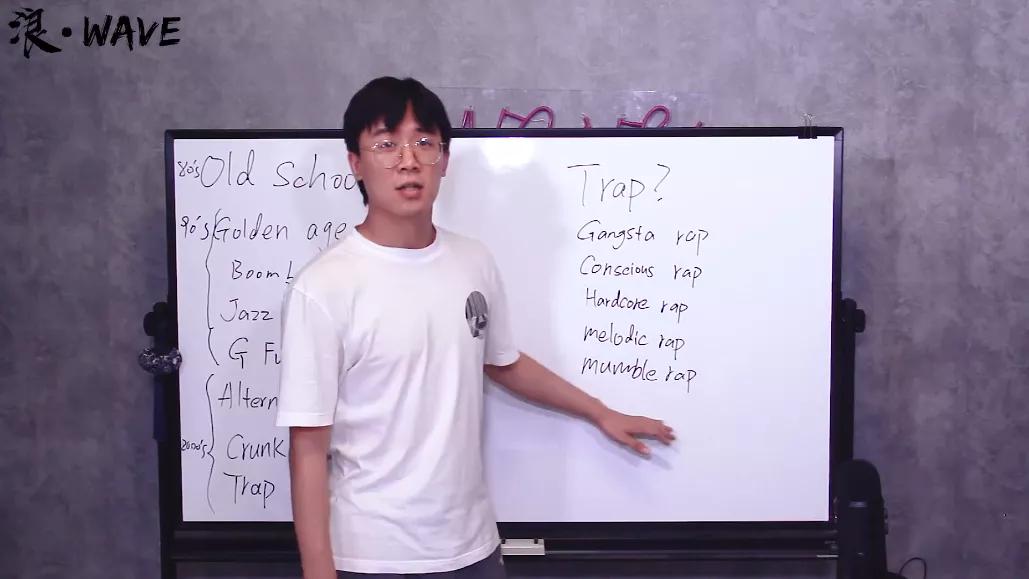 浪·WAVE
80's Old Schoo
90's Golden age
Boom b
Jazz
G Fu
Altern
2000's Crunk
Trap
Trap?
Gangsta rap
Conscious rap
Hardcore rap
melodic rap
mumble rap